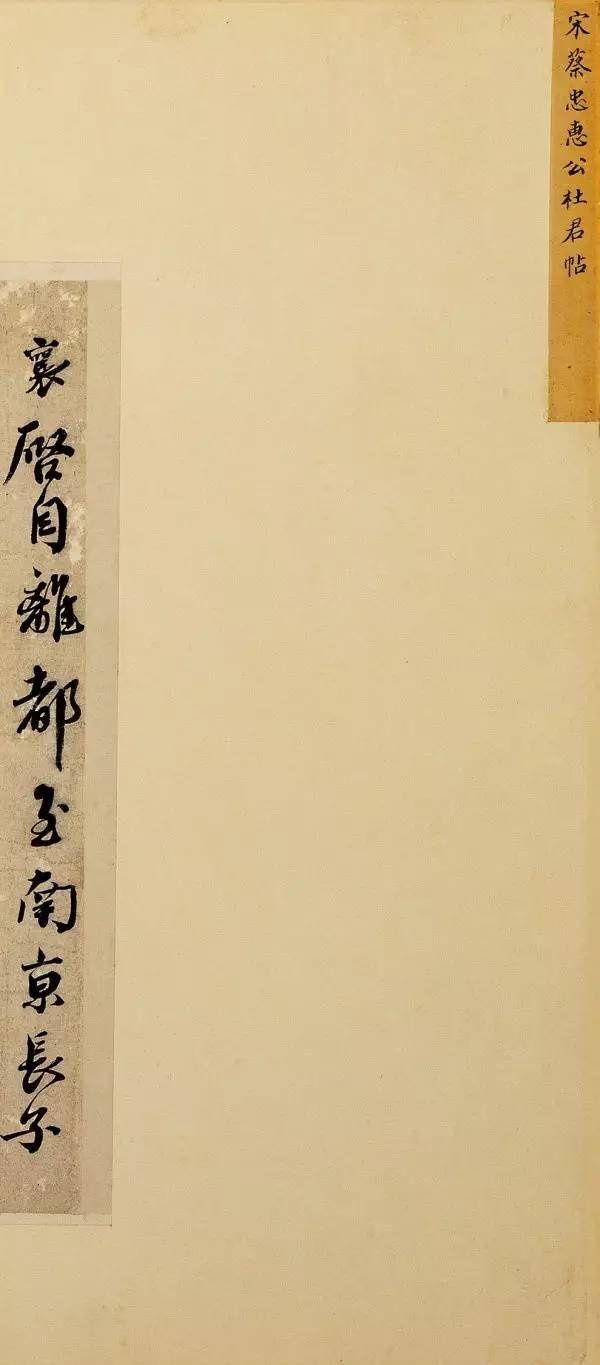 宋蔡忠惠公杜君帖
襄啓自離都至南京長子